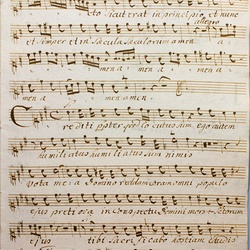 eto sicut erat in principio, et nunc
allegro
et semper et in sæcula sæculorum amen a
men a men a men a
men a men amen.
Credidi ppter locutus sum ego autem
humiliatus humiliatus sum nimis
Vota mea Domino reddam coram omni populo
ejus pretiosa in conspectu Domini mors Sctorum
ejus tibi sacrificabo hostiam laudis